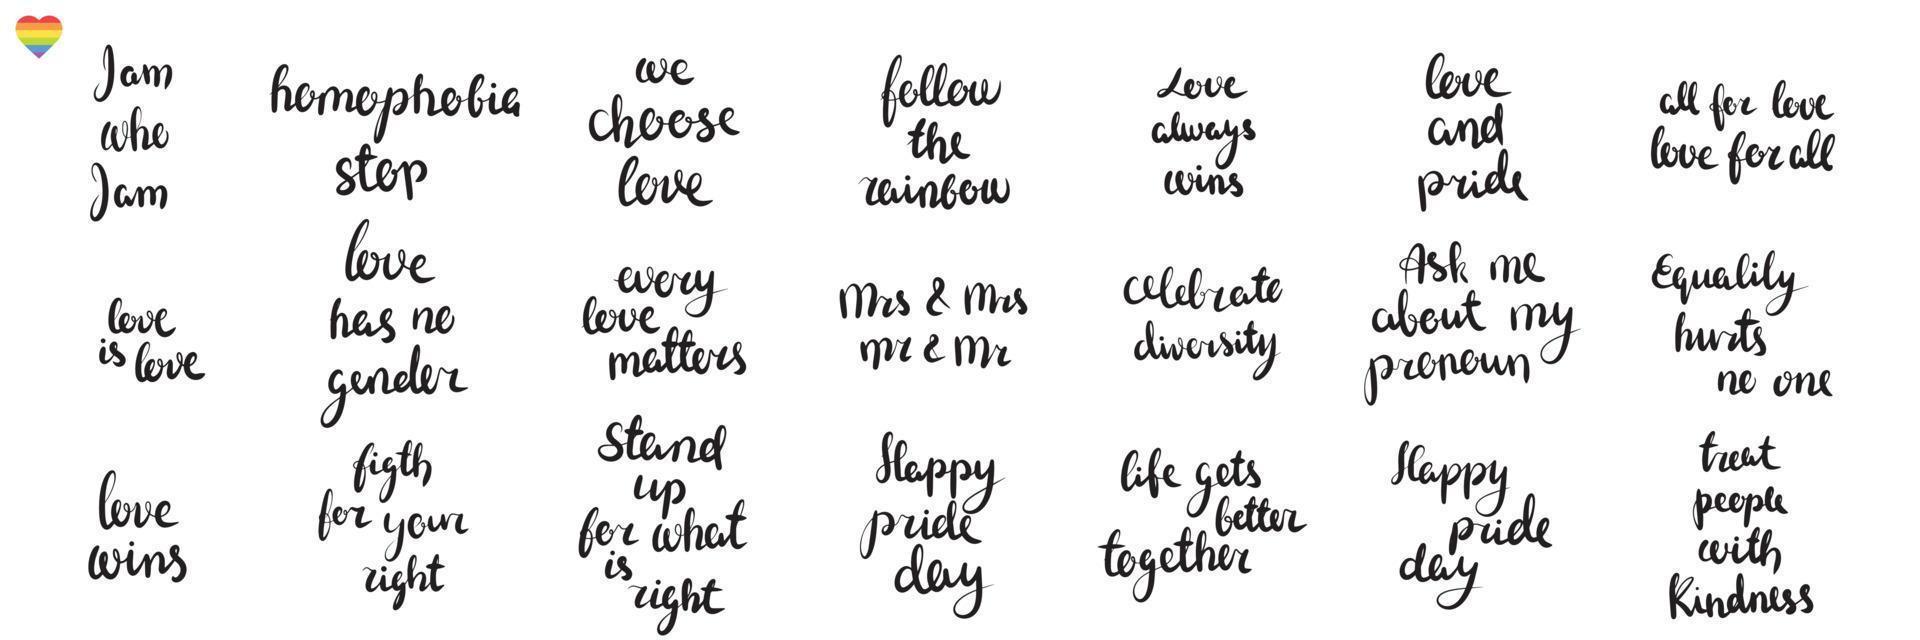 I am
who
I am
homophobia
stop
we
choose
love
follow
the
rainbow
Love
always
wins
love
and
pride
all for love
love for all
love
is love
love
has no
gender
every
love
matters
Mrs & Mrs
mr & Mr
Celebrate
diversity
Ask me
about my
pronoun
Equality
hurts
no one
love
wins
figth
for your
right
Stand
up
for what
is
right
Happy
pride
day
life gets
better
together
Happy
pride
day
treat
people
with
Kindness